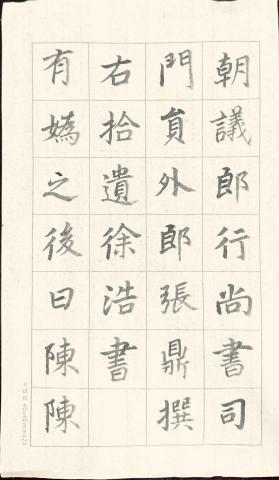 朝議郎行尚書司
門員外郎張鼎撰
右拾遺徐浩書
有嬀之後曰陳陳